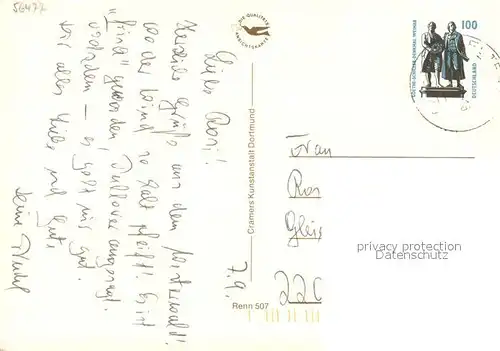 56477
DIE QUALITÄTS
ANSICHTSKARTE
Liebe Rosi!
Herzliche Grüße aus dem Westerwald!
wo der Wind so kalt pfeift! Es ist
"frisch" geworden! Pullover angesagt!
trotzdem – es geht uns gut.
Dir alles Liebe und Gute
Deine
7.9.
Cramers Kunstanstalt Dortmund
Renn 507
GOETHE-SCHILLER-DENKMAL WEIMAR
100
DEUTSCHLAND
Frau
Ros
Glei
220
privacy protection
DATENSCHUTZ